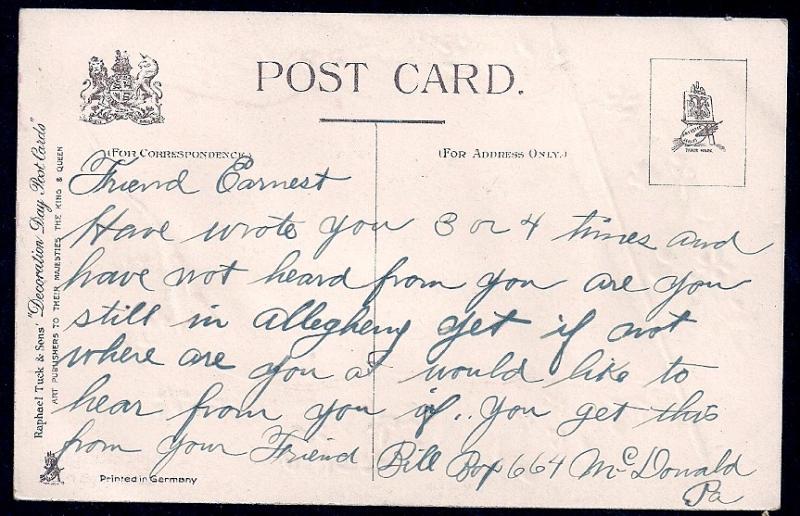 POST CARD.
(FOR CORRESPONDENCE.)
(FOR ADDRESS ONLY.)
TRADE MARK
Friend Earnest
Have wrote you 3 or 4 times and
have not heard from you are you
still in Allegheny yet if not
where are you at would like to
hear from you if.. you get this
from your Friend Bill Box 664 McDonald
Pa
Raphael Tuck & Sons' "Decoration Day Post Cards"
ART PUBLISHERS TO THEIR MAJESTIES THE KING & QUEEN
Printed in Germany